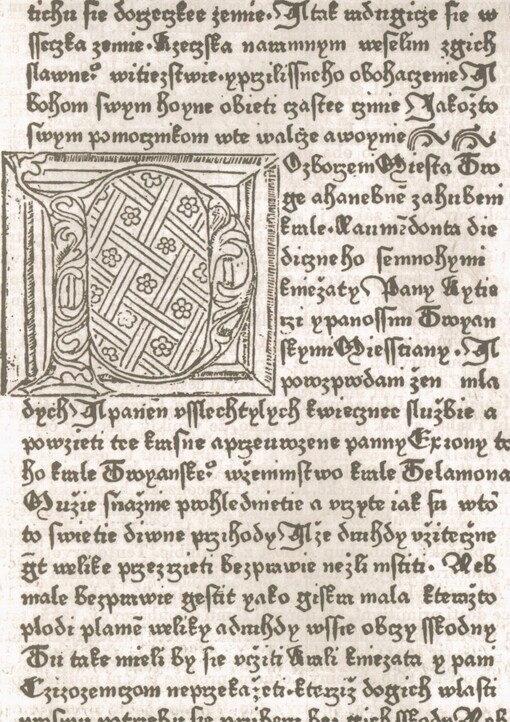 tichu ſie dorzeczkee zemie. A tak wdrugieze ſie w
ſſeczka zemie. Rzeczſka naramnym weſelim zgich
ſlawne° witiezſtwie. yprziliſſneho obohaczenie A
bohom ſwym hoyne obieti czaſtee czinie Jakožto
ſwym pomocznikom wte walcze awoynie
Ozborzem Mieſta Tro
ge ahanebnē zahubeni
krale. Laumīdonta die
diczneho ſemnohymi
kniežaty Pany Rytie
rzi ypanoſſmi Troyan
ſkymi Mieſſtiany. A
powozprodam žen mla
dych A panen vſſlechtylych kwiecznee ſlužbie a
powzieti tee kraſne aprzeurozene panny Exiony to
ho krale Troyanſke° wzemimſtwo krale Telamona
Mužie ſnažnie prohlednietie a vrzyte iak ſu wtō
to ſwietie diwne przihody A že druhdy vžiteczne
gt welike przezrzieti bezprawie nežli mſtiti. Neb
male bezprawie geſtit yako giſkra mala kteražto
plodi plamē weliky adruhdy wſſie obczy ſſkodny
Tu take mieli by ſie vcziti Krali kniezata y pani
Czizozemczom neprzekažeti. kterziž dogich wlaſti